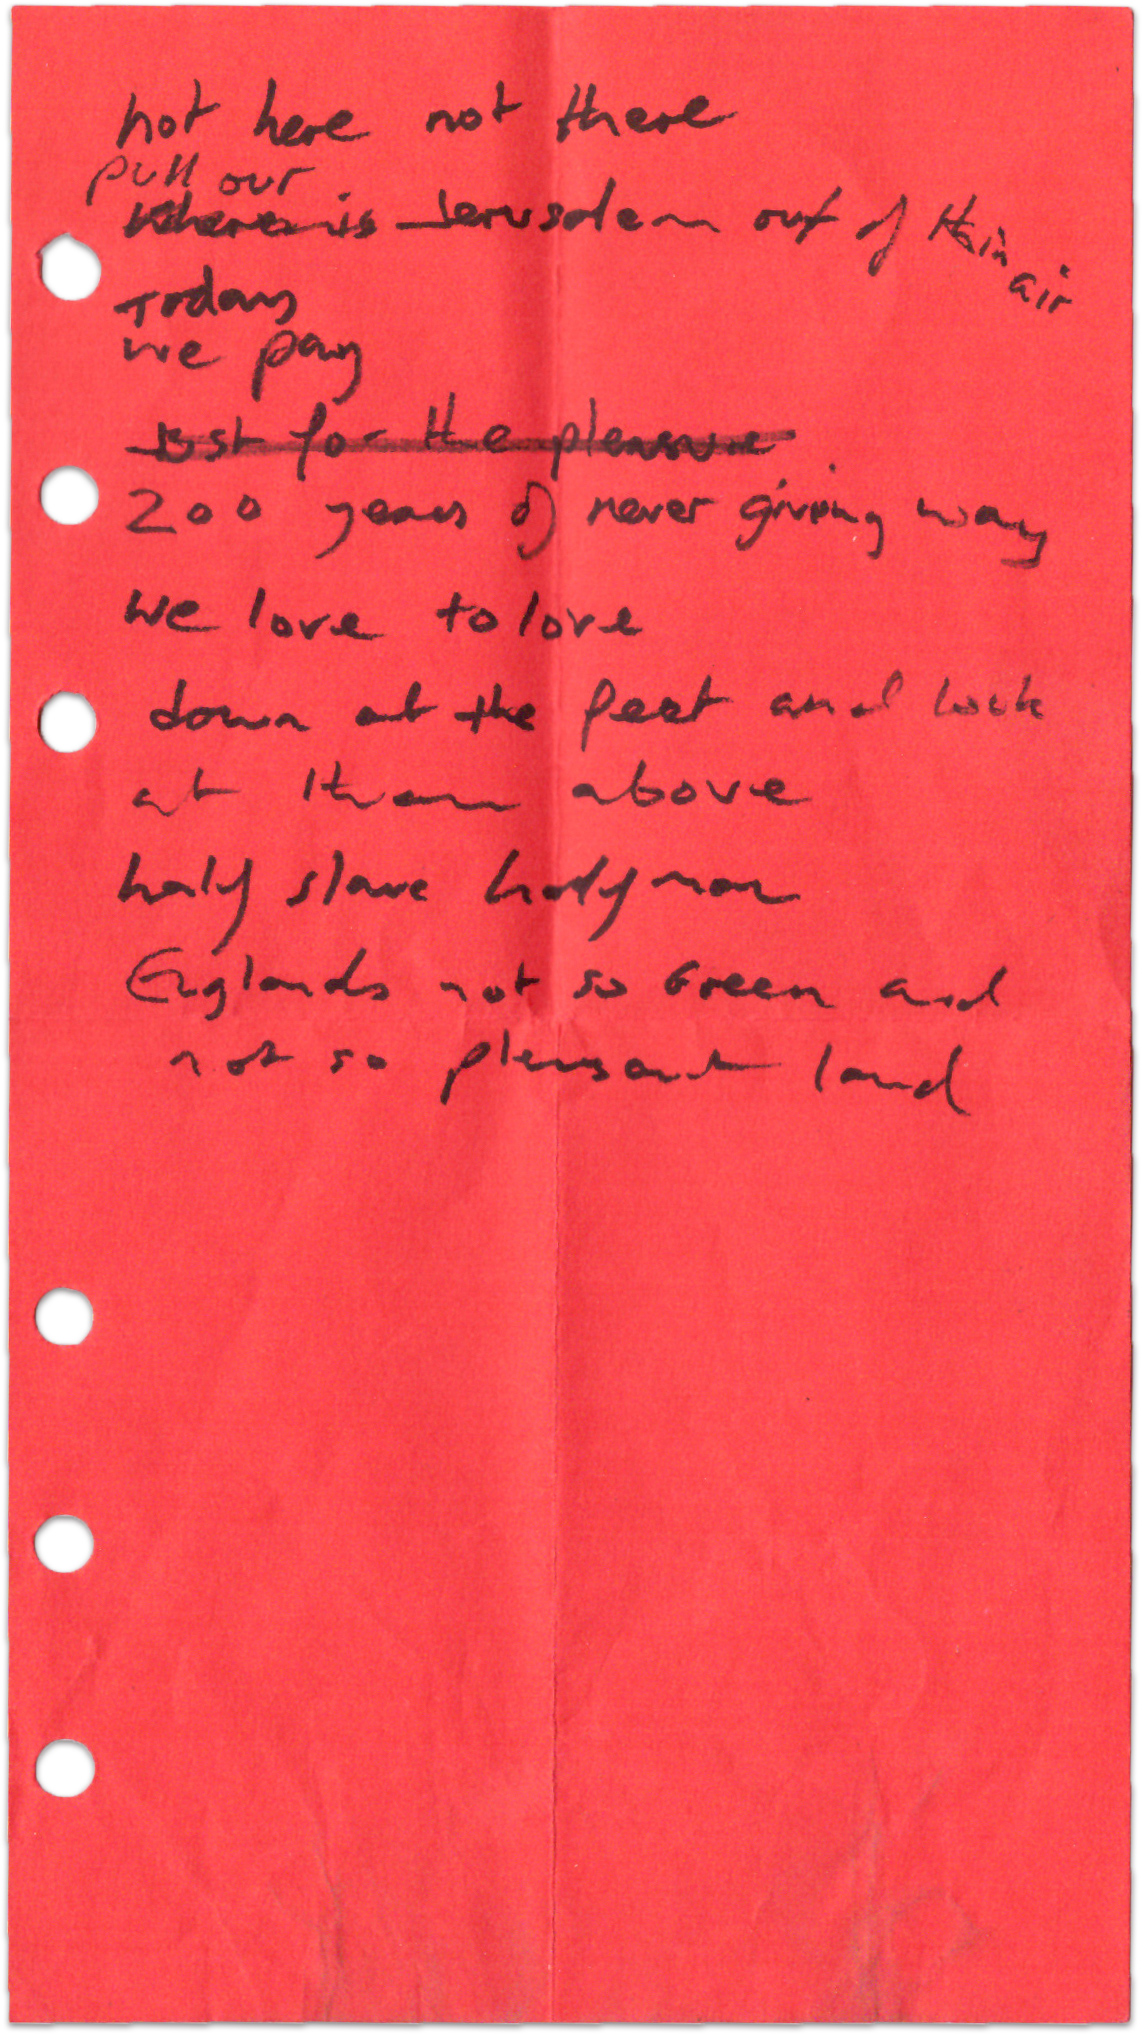 not here not there
pull our
Where is Jerusalem out of thin
air
Today
we pay
Just for the pleasure
200 years of never giving way
We love to love
down at the feet and look
at them above
half slave half man
Englands not so Green and
not so pleasant land